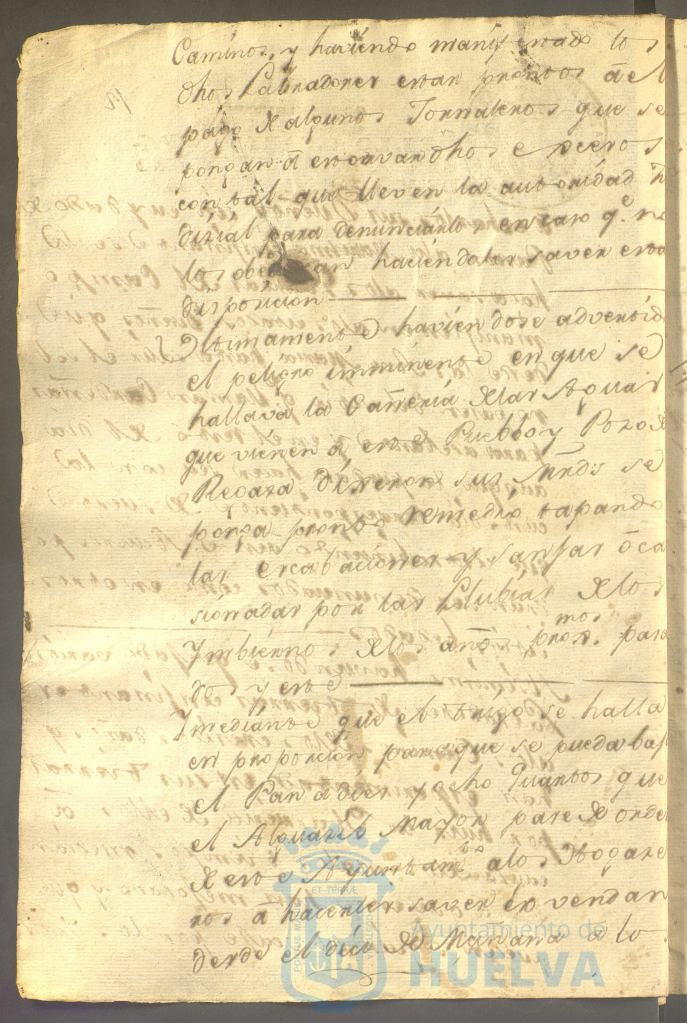 Caminos, y haviendo manifestado los
dhos Labradores estar prontos ael
pago de algunos Jornaleros que se
pongan â
con tal que lleven la autoridad
dizial para denunciarlos en caso q.e no
los obedescan haciendoles saver esta
disposicion
Ultimamente haviendose advertid
el peligro imminente en que se
hallava la Cañeria de las Aguas
que vienen â este Pueblo y Pozo de
Regaza dixeron sus Mrds se
ponga pronto remedio tapando
las escabaciones y sanjas oca
sionadas por las Llubias de los
Imbiernos de los años prox.mos pasa
dos y este
Imediante que el trigo se halla
en proporcion para que se pueda bajar
el Pan a diez y ocho Quartos que
el Alguazil Mayor pase de orden
de este Ayuntam.to a los
ros â hacerles saver lo vendan
desde el dia de Mañana a lo
Ayuntamiento de
HUELVA